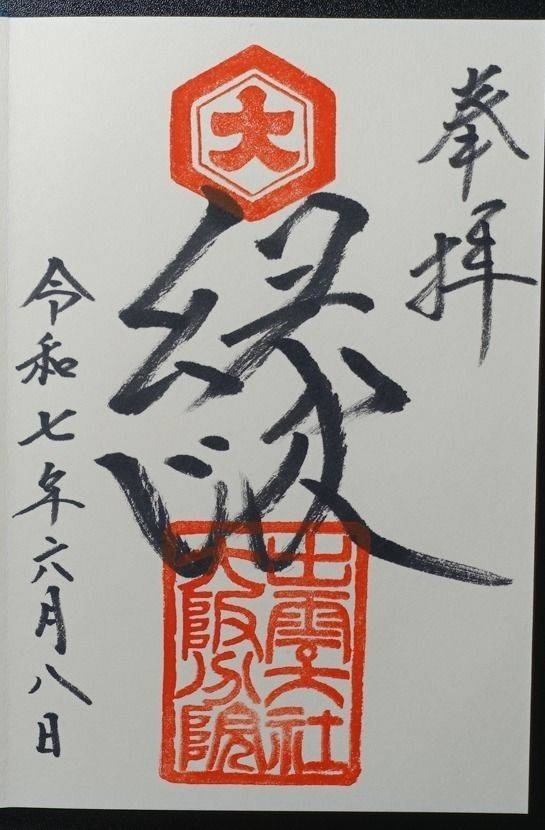 奉拝
大
縁
出雲大社
大阪分院
令和七年六月八日